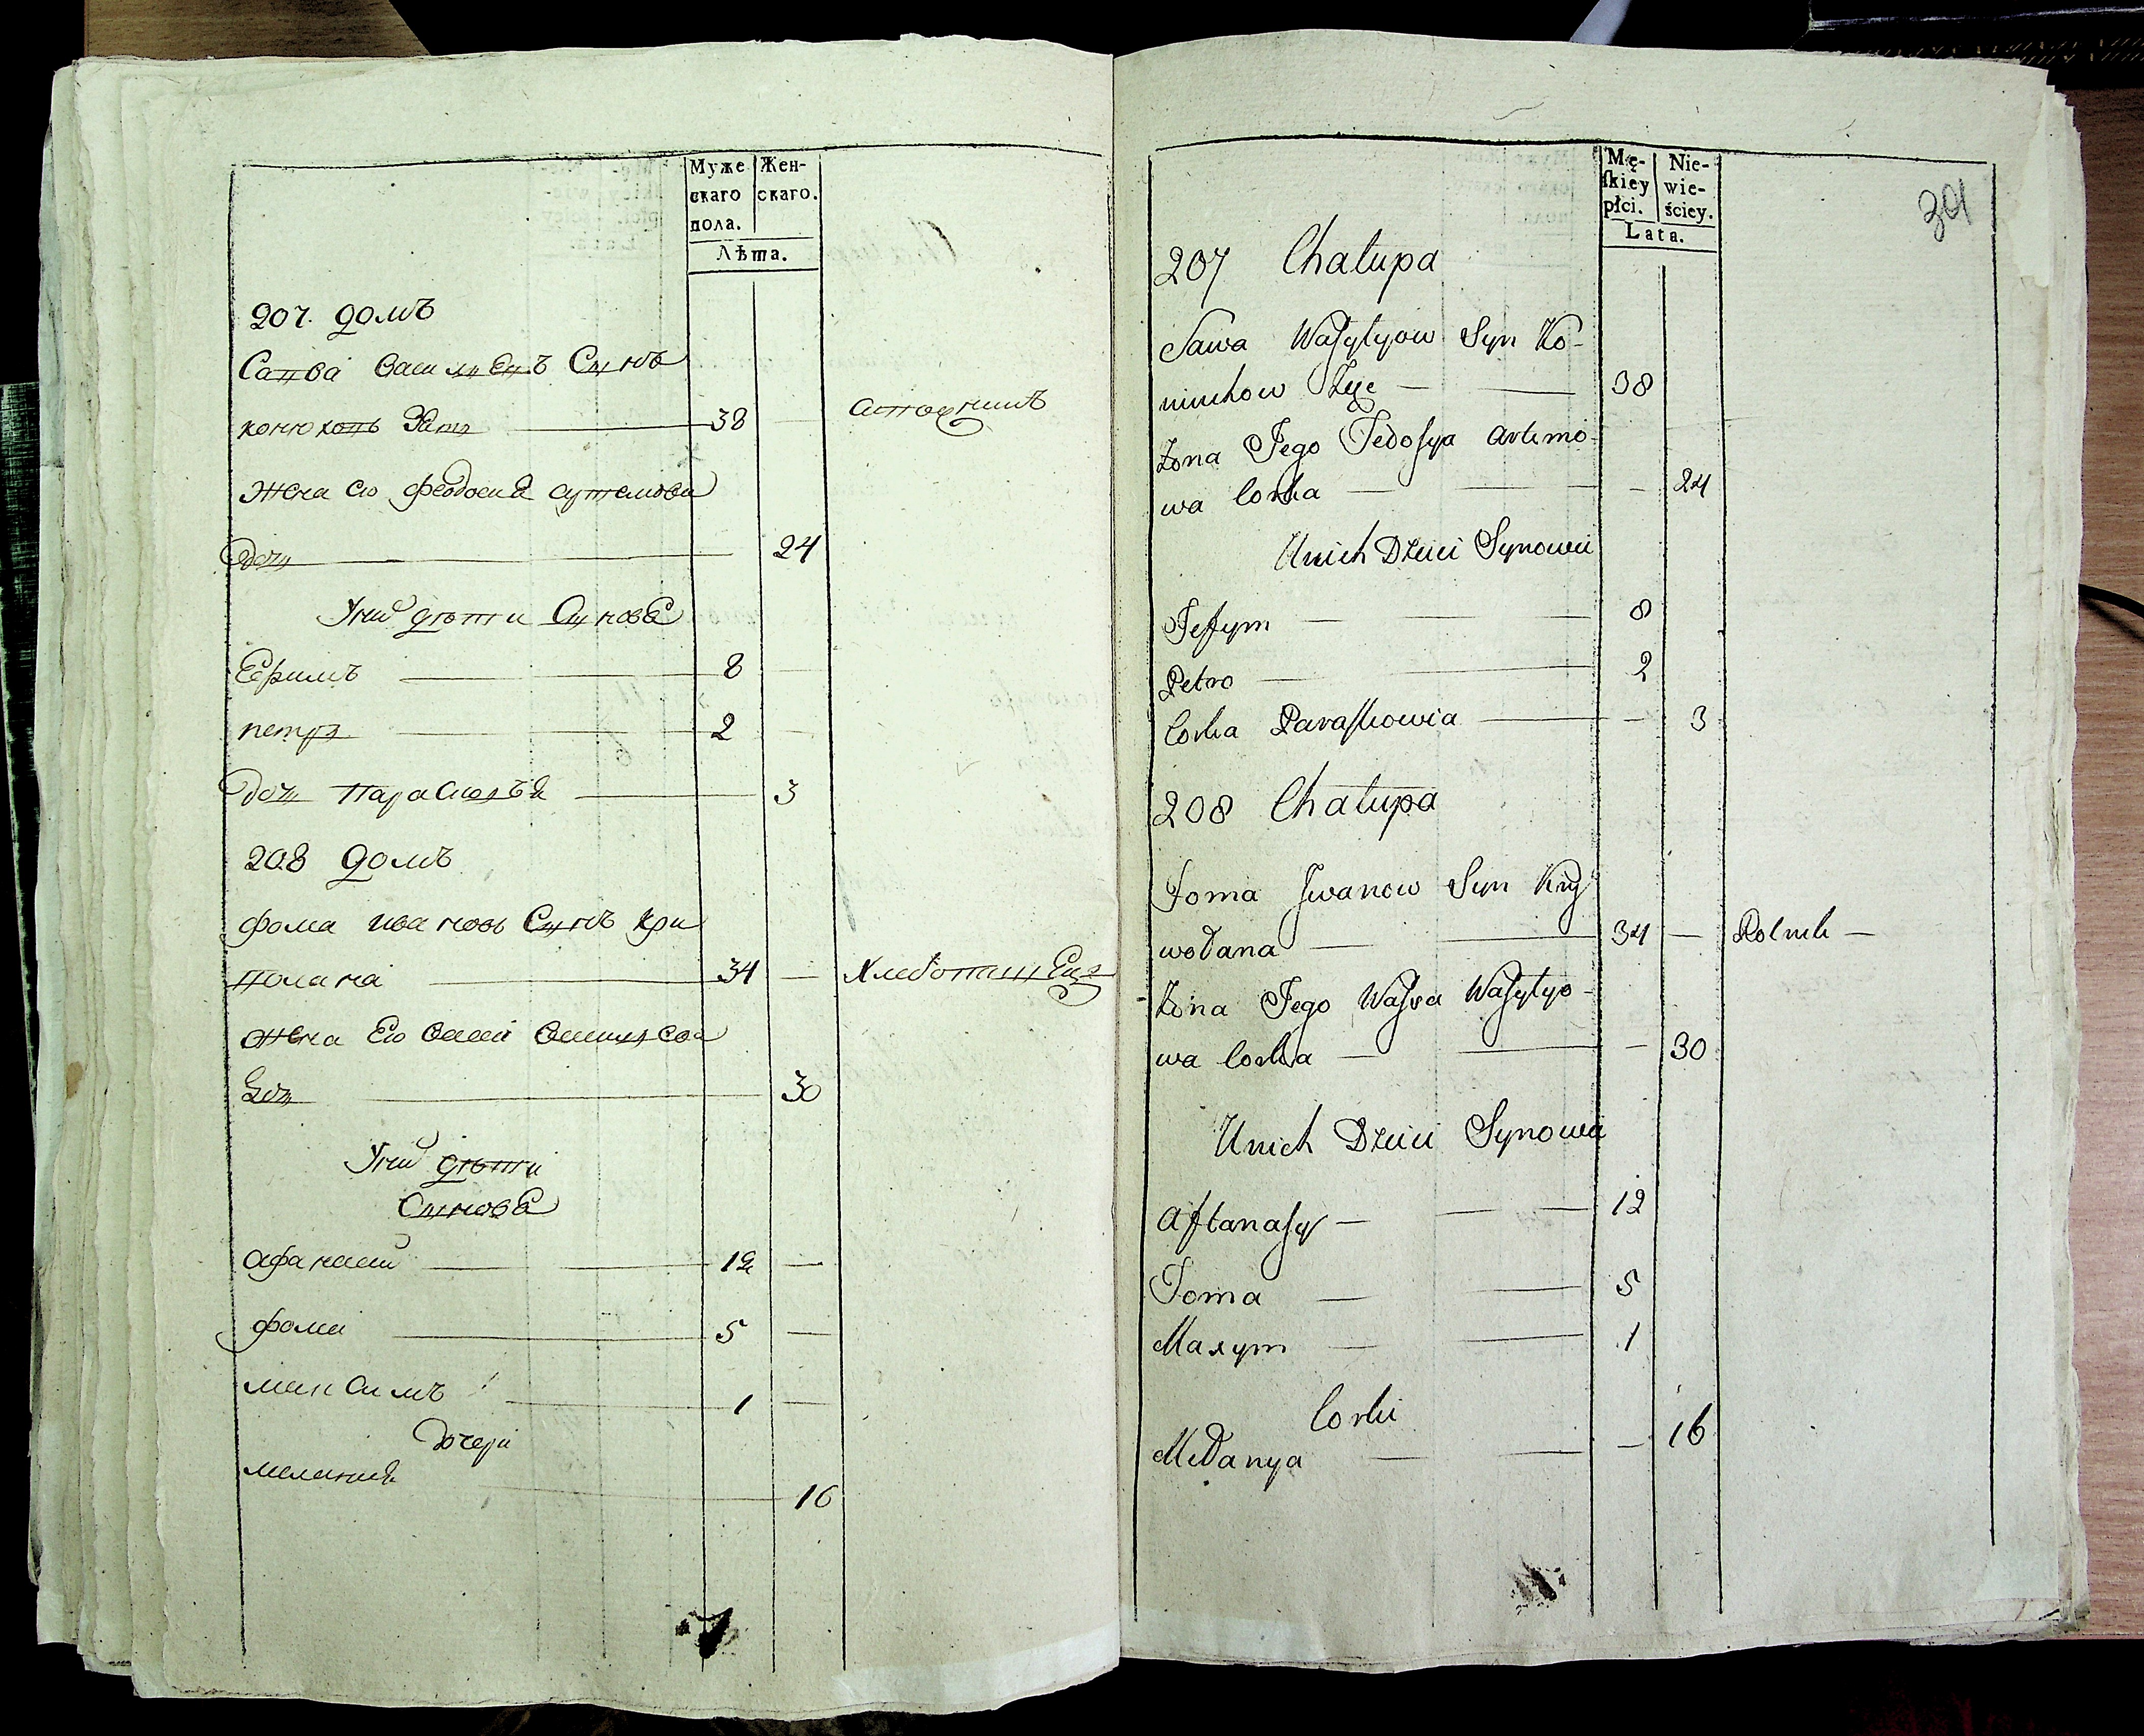 Муже
скаго
пола.
Жен-
скаго.
Лѣта.
207. домъ
Савва васильевъ Сынъ
конюховъ Зять — 38
жена его феодосия артемова
дочь — 24
У них дѣти Сынове
Ефимъ — 8
петръ — 2
дочь Парасковья — 3
208 домъ
фома ивановъ Сынъ Кри
полана — 34 — хлебопашецъ
жена Его васса васильева
дочь — 30
У них дѣти
Сынове
афанасий — 12 —
фома — 5 —
максимъ — 1 —
дочери
мелания — 16
Mę-
skiey
płci.
Nie-
wie-
ściey.
Lata.
301
207 Chałupa
Sawa Wasylyow Syn Ko-
niuchow Zięć — 38
Żona Jego Fedosya Artemo-
wa Corka — 24
Unich Dzieci Synowie
Jefym — 8
Petro — 2
Corka Paraskowia — 3
208 Chałupa
Foma Jwanow Syn Kry
wołana — 34 — Rolnik —
Żona Jego Wassa Wasylyo-
wa Corka — 30
Unich Dzieci Synowie
Aftanasy — 12
Foma — 5
Maxym — 1
Corki
Mełanya — 16